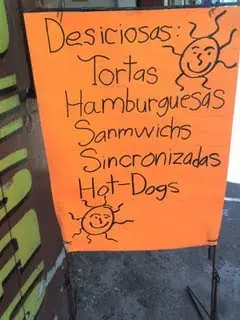 Desiciosas:
Tortas
Hamburguesas
Sanmwichs
Sincronizadas
Hot-Dogs